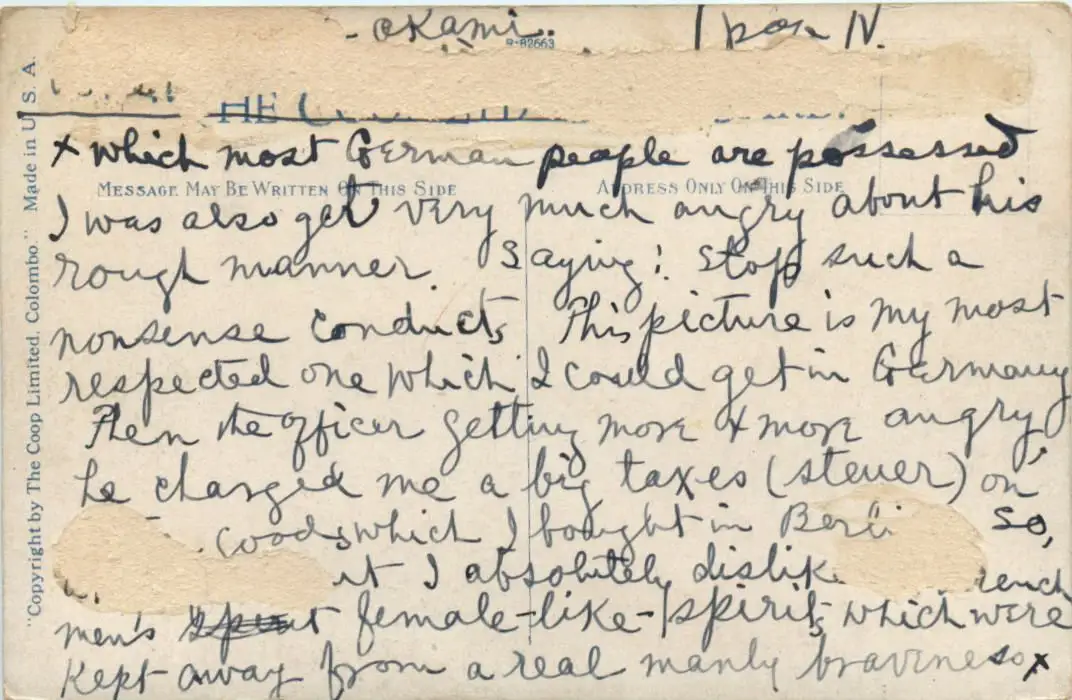 - okami.
R-82663
HE
x which most German people are possessed
MESSAGE MAY BE WRITTEN ON THIS SIDE
ADDRESS ONLY ON THIS SIDE
I was also get very much angry about his
rough manner. Saying: Stop such a
nonsense conducts, This picture is my most
respected one which I could get in Germany
Then the officer getting more & more angry,
he charged me a big taxes (steuer) on
goods which I bought in Berli So,
I absolutely dislike
men's female-like-spirits, which were
kept away from a real manly braveness x
"Copyright by The Coop Limited. Colombo." Made in U. S. A.